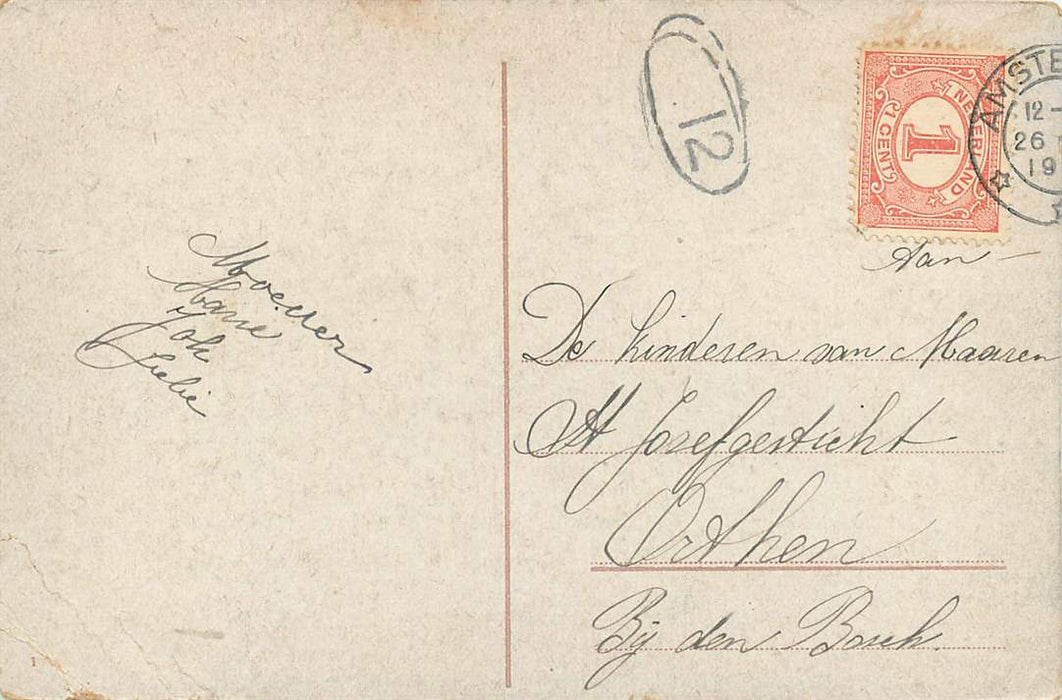 12
NEDERLAND
1
1 CENT
AMSTE
12-
26
19
Moeder
Marie
Joh
Lielie
Aan -
De kinderen van Maaren
St Josefgesticht
Orthen
Bij den Bosch.
1